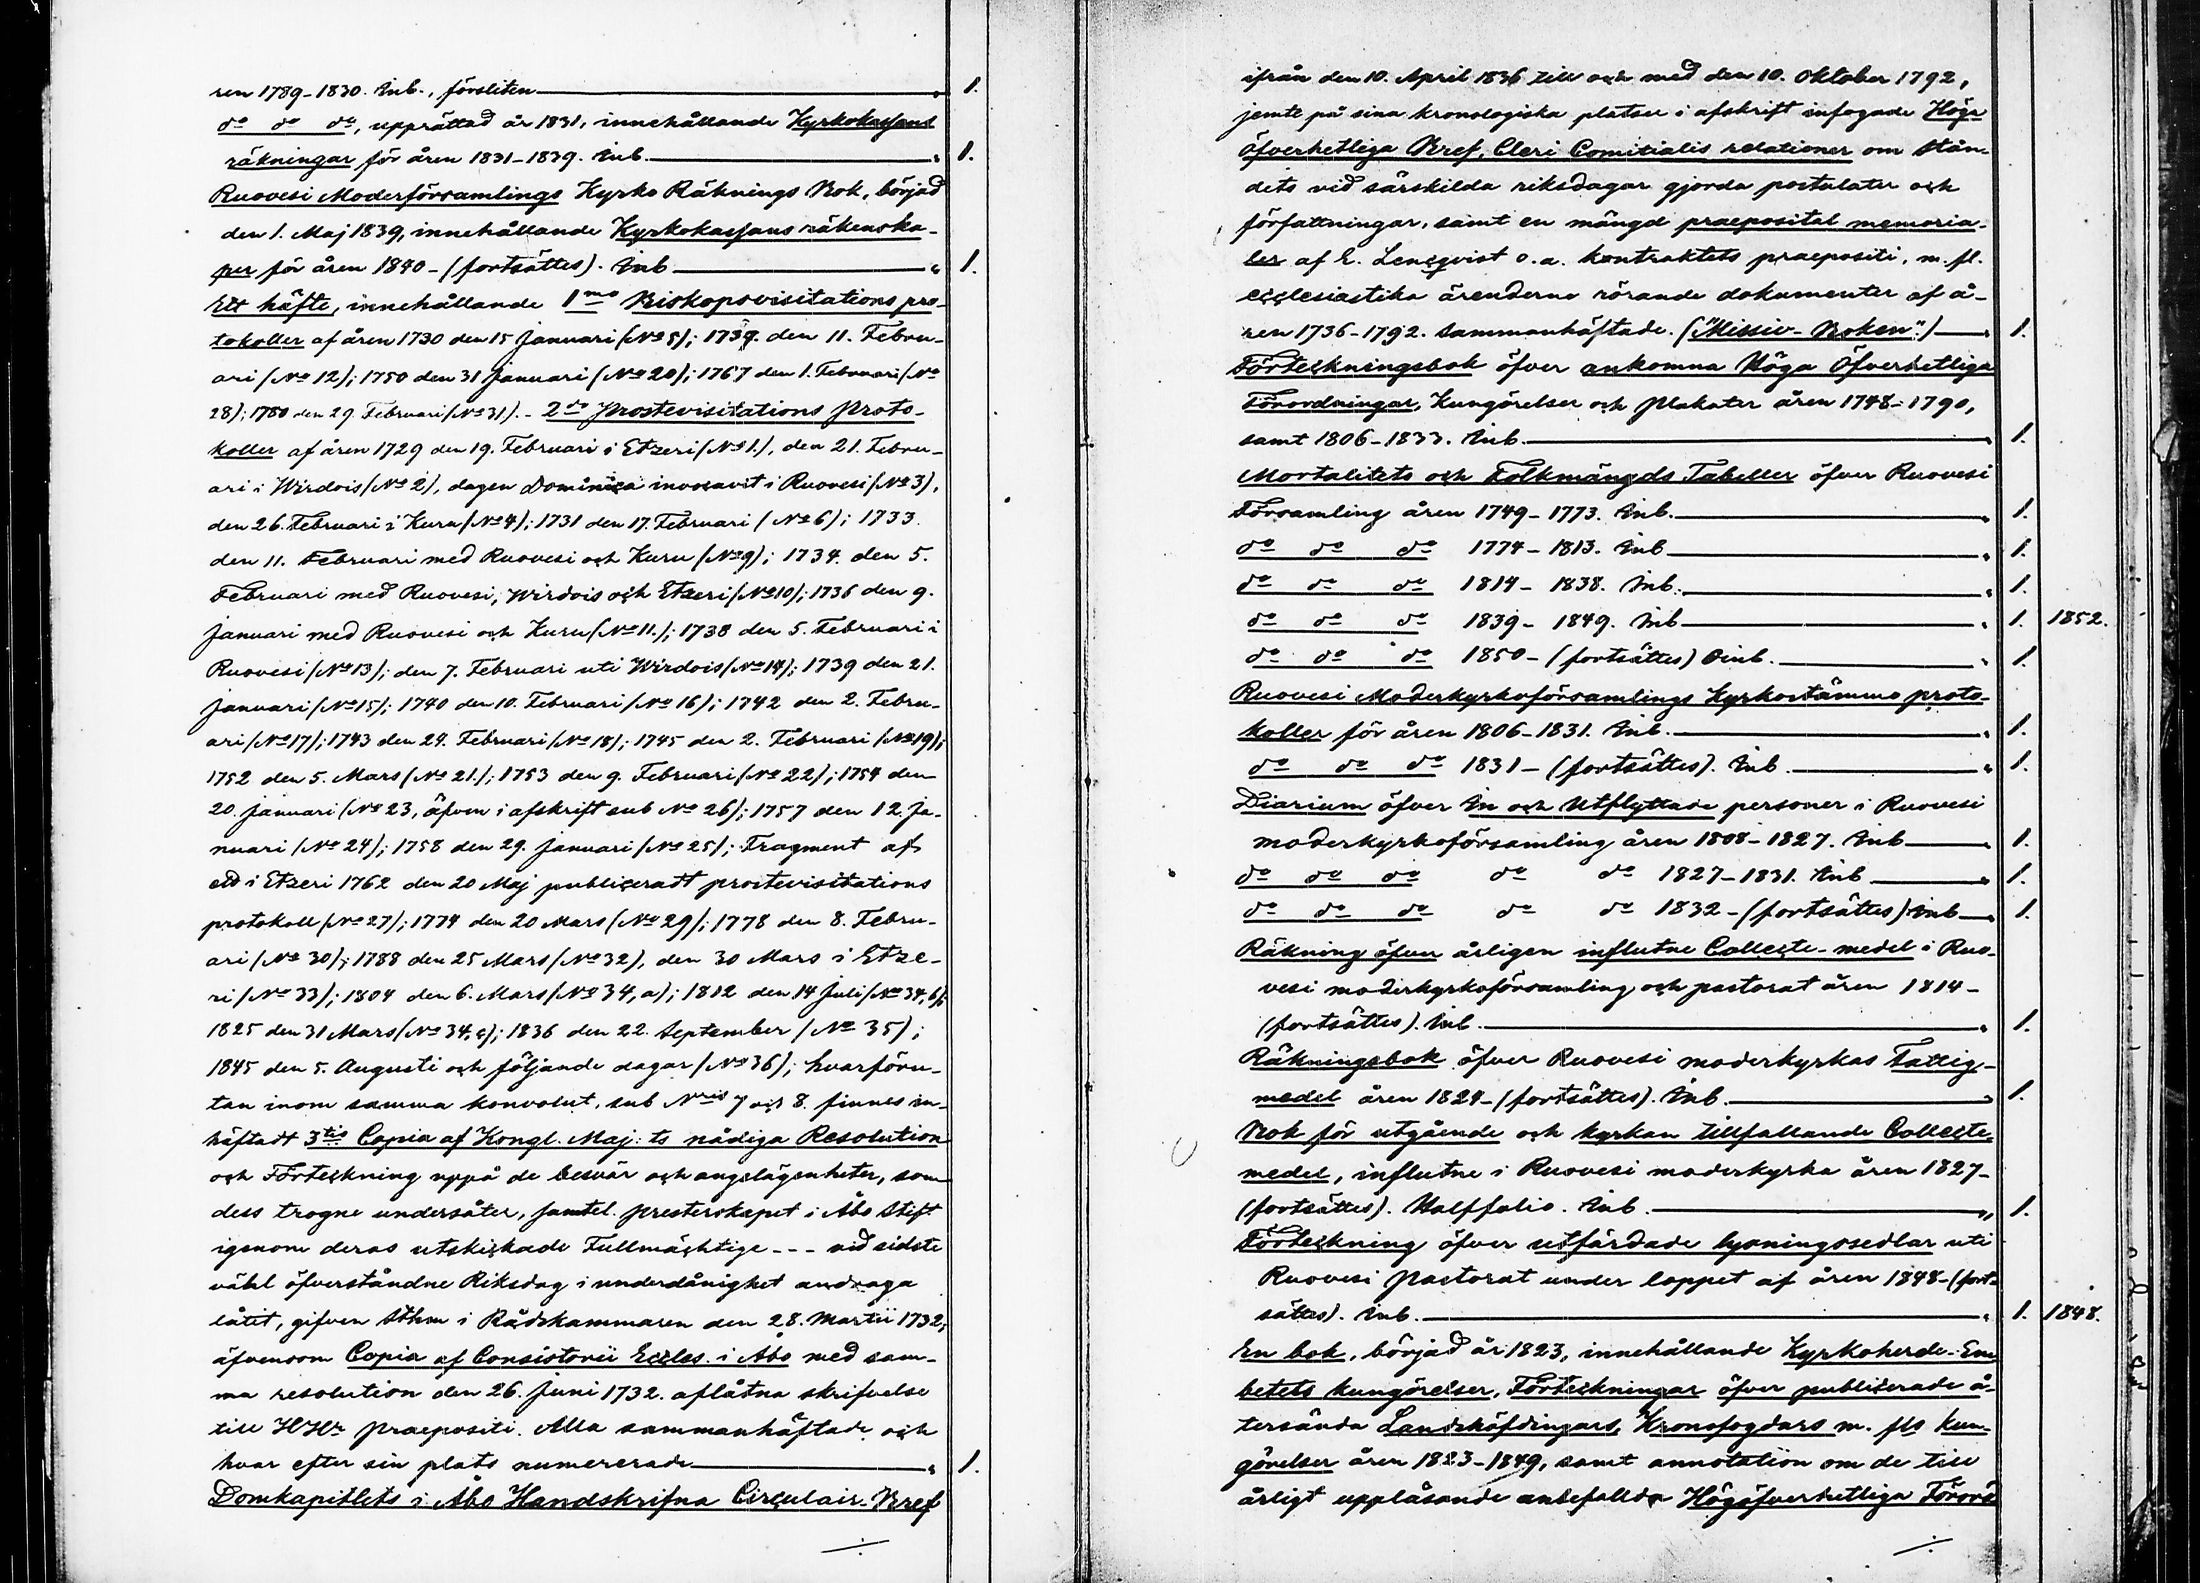 ren 1789-1830. Inb., försliten 1.
do do do, upprättad år 1831, innehållande Kyrkokassans
räkningar för åren 1831-1839. Inb. 1.
Ruovesi Moderförsamlings Kyrko Räknings Bok, börjad
den 1. Maj 1839, innehållande Kyrkokassans räkenska-
per för åren 1840-(fortsättes). Inb 1.
Ett häfte, innehållande 1mo Biskopsvisitations pro-
tokoller af åren 1730 den 15 Januari (No 5); 1739. den 11. Febru-
ari (No 12); 1750 den 31 Januari (No 20); 1767 den 1. Februari (No
28); 1780 den 29 Februari (No 31).- 2do Prostevisitations Proto-
koller af åren 1729 den 19. Februari i Etzeri (No 1.), den 21. Febru-
ari i Wirdois (No 2), dagen Dominica invocavit i Ruovesi (No 3),
den 26. Februari i Kuru (No 4); 1731 den 17. Februari (No 6); 1733.
den 11. Februari med Ruovesi och Kuru (No 9); 1734. den 5.
Februari med Ruovesi, Wirdois och Etzeri (No 10); 1736 den 9.
Januari med Ruovesi och Kuru (No 11.); 1738 den 5. Februari i
Ruovesi (No 13); den 7. Februari uti Wirdois (No 14); 1739 den 21.
Januari (No 15); 1740 den 10. Februari (No 16); 1742 den 2. Febru-
ari (No 17); 1743 den 24. Februari (No 18); 1745 den 2. Februari (No 19);
1752 den 5. Mars (No 21.); 1753 den 9. Februari (No 22); 1754 den
20. Januari (No 23, äfven i afskrift sub No 26); 1757 den 12. Ja-
nuari (No 24); 1758 den 29. Januari (No 25); Fragment af
ett i Etzeri 1762 den 20 Maj publiceradt prostevisitations
protokoll (No 27); 1774 den 20 Mars (No 29); 1778 den 8. Febru-
ari (No 30); 1788 den 25 Mars (No 32), den 30 Mars i Etze-
ri (No 33); 1804 den 6. Mars (No 34, a); 1812 den 14 Juli (No 34, b);
1825 den 31 Mars (No 34, c); 1836 den 22. September (No 35);
1845 den 5. Augusti och följande dagar (No 36); hvarföru-
tan inom samma konvolut, sub Nris 7 och 8. finnes in-
häftadt 3tio Copia af Kongl. Maj:ts nådiga Resolution
och Förteckning uppå de besvär och angelägenheter, som
dess trogne undersåter, samtel. presterskapet i Åbo Stift
igenom deras utskickade Fullmächtige --- vid sidste
vähl öfverståndne Riksdag i underdånighet andraga
låtit, gifven Sthm i Rådskammaren den 28. Martii 1732,
äfvensom Copia af Consistorii Eccles. i Åbo med sam-
ma resolution den 26. Juni 1732. aflåtna skrifvelse
till HHr Praepositi. Alla sammanhäftade och
hvar efter sin plats numererade 1.
Domkapitlets i Åbo Handskrifna Circulair-Bref
ifrån den 10. April 1836 till och med den 10. Oktober 1792,
jemte på sina kronologiska platser i afskrift infogade Höga
öfverhetliga Bref, Cleri Comitialis relationer om stån-
dets vid särskilda riksdagar gjorda postulater och
författningar, samt en mängd praeposital memoria-
ler af E. Lencqvist o.a. kontraktets praepositi, m.fl.
ecclesiastika ärenderna rörande dokumenter af å-
ren 1736-1792. sammanhäftade. ("Missiv-Boken") 1.
Förteckningsbok öfver ankomna Höga Öfverhetliga
Förordningar, Kungörelser och Plakater åren 1748-1790,
samt 1806-1833. Inb. 1.
Mortalitets och Folkmängds Tabeller öfver Ruovesi
Församling åren 1749-1773. Inb. 1.
do do do 1774-1813. Inb 1.
do do do 1814-1838. Inb. 1.
do do do 1839-1849. Inb 1. 1852.
do do do 1850-(fortsättes) Oinb. 1.
Ruovesi Moderkyrkoförsamlings Kyrkostämmo proto-
koller för åren 1806-1831. Inb. 1.
do do do 1831-(fortsättes). Inb. 1.
Diarium öfver In och Utflyttade personer i Ruovesi
moderkyrkoförsamling åren 1808-1827. Inb 1.
do do do do do 1827-1831. Inb 1.
do do do do do 1832-(fortsättes) Inb 1.
Räkning öfver årligen influtne Collecte-medel i Ruo-
vesi moderkyrkoförsamling och pastorat åren 1814-
(fortsättes). Inb. 1.
Räkningsbok öfver Ruovesi moderkyrkas Fattig-
medel åren 1824-(fortsättes). Inb. 1.
Bok för utgående och kyrkan tillfallande Collecte-
medel, influtne i Ruovesi moderkyrka åren 1827-
(fortsättes). Halffolio. Inb. 1.
Förteckning öfver utfärdade lysningssedlar uti
Ruovesi Pastorat under loppet af åren 1848-(fort-
sättes). Inb. 1. 1848.
En bok, börjad år 1823, innehållande Kyrkoherde-Em-
betets kungörelser, Förteckningar öfver publicerade å-
tersända Landshöfdingars, Kronofogdars m. fls kun-
görelser åren 1823-1849, samt annotation om de till
årligt uppläsande anbefallda Högöfverhetliga Föror